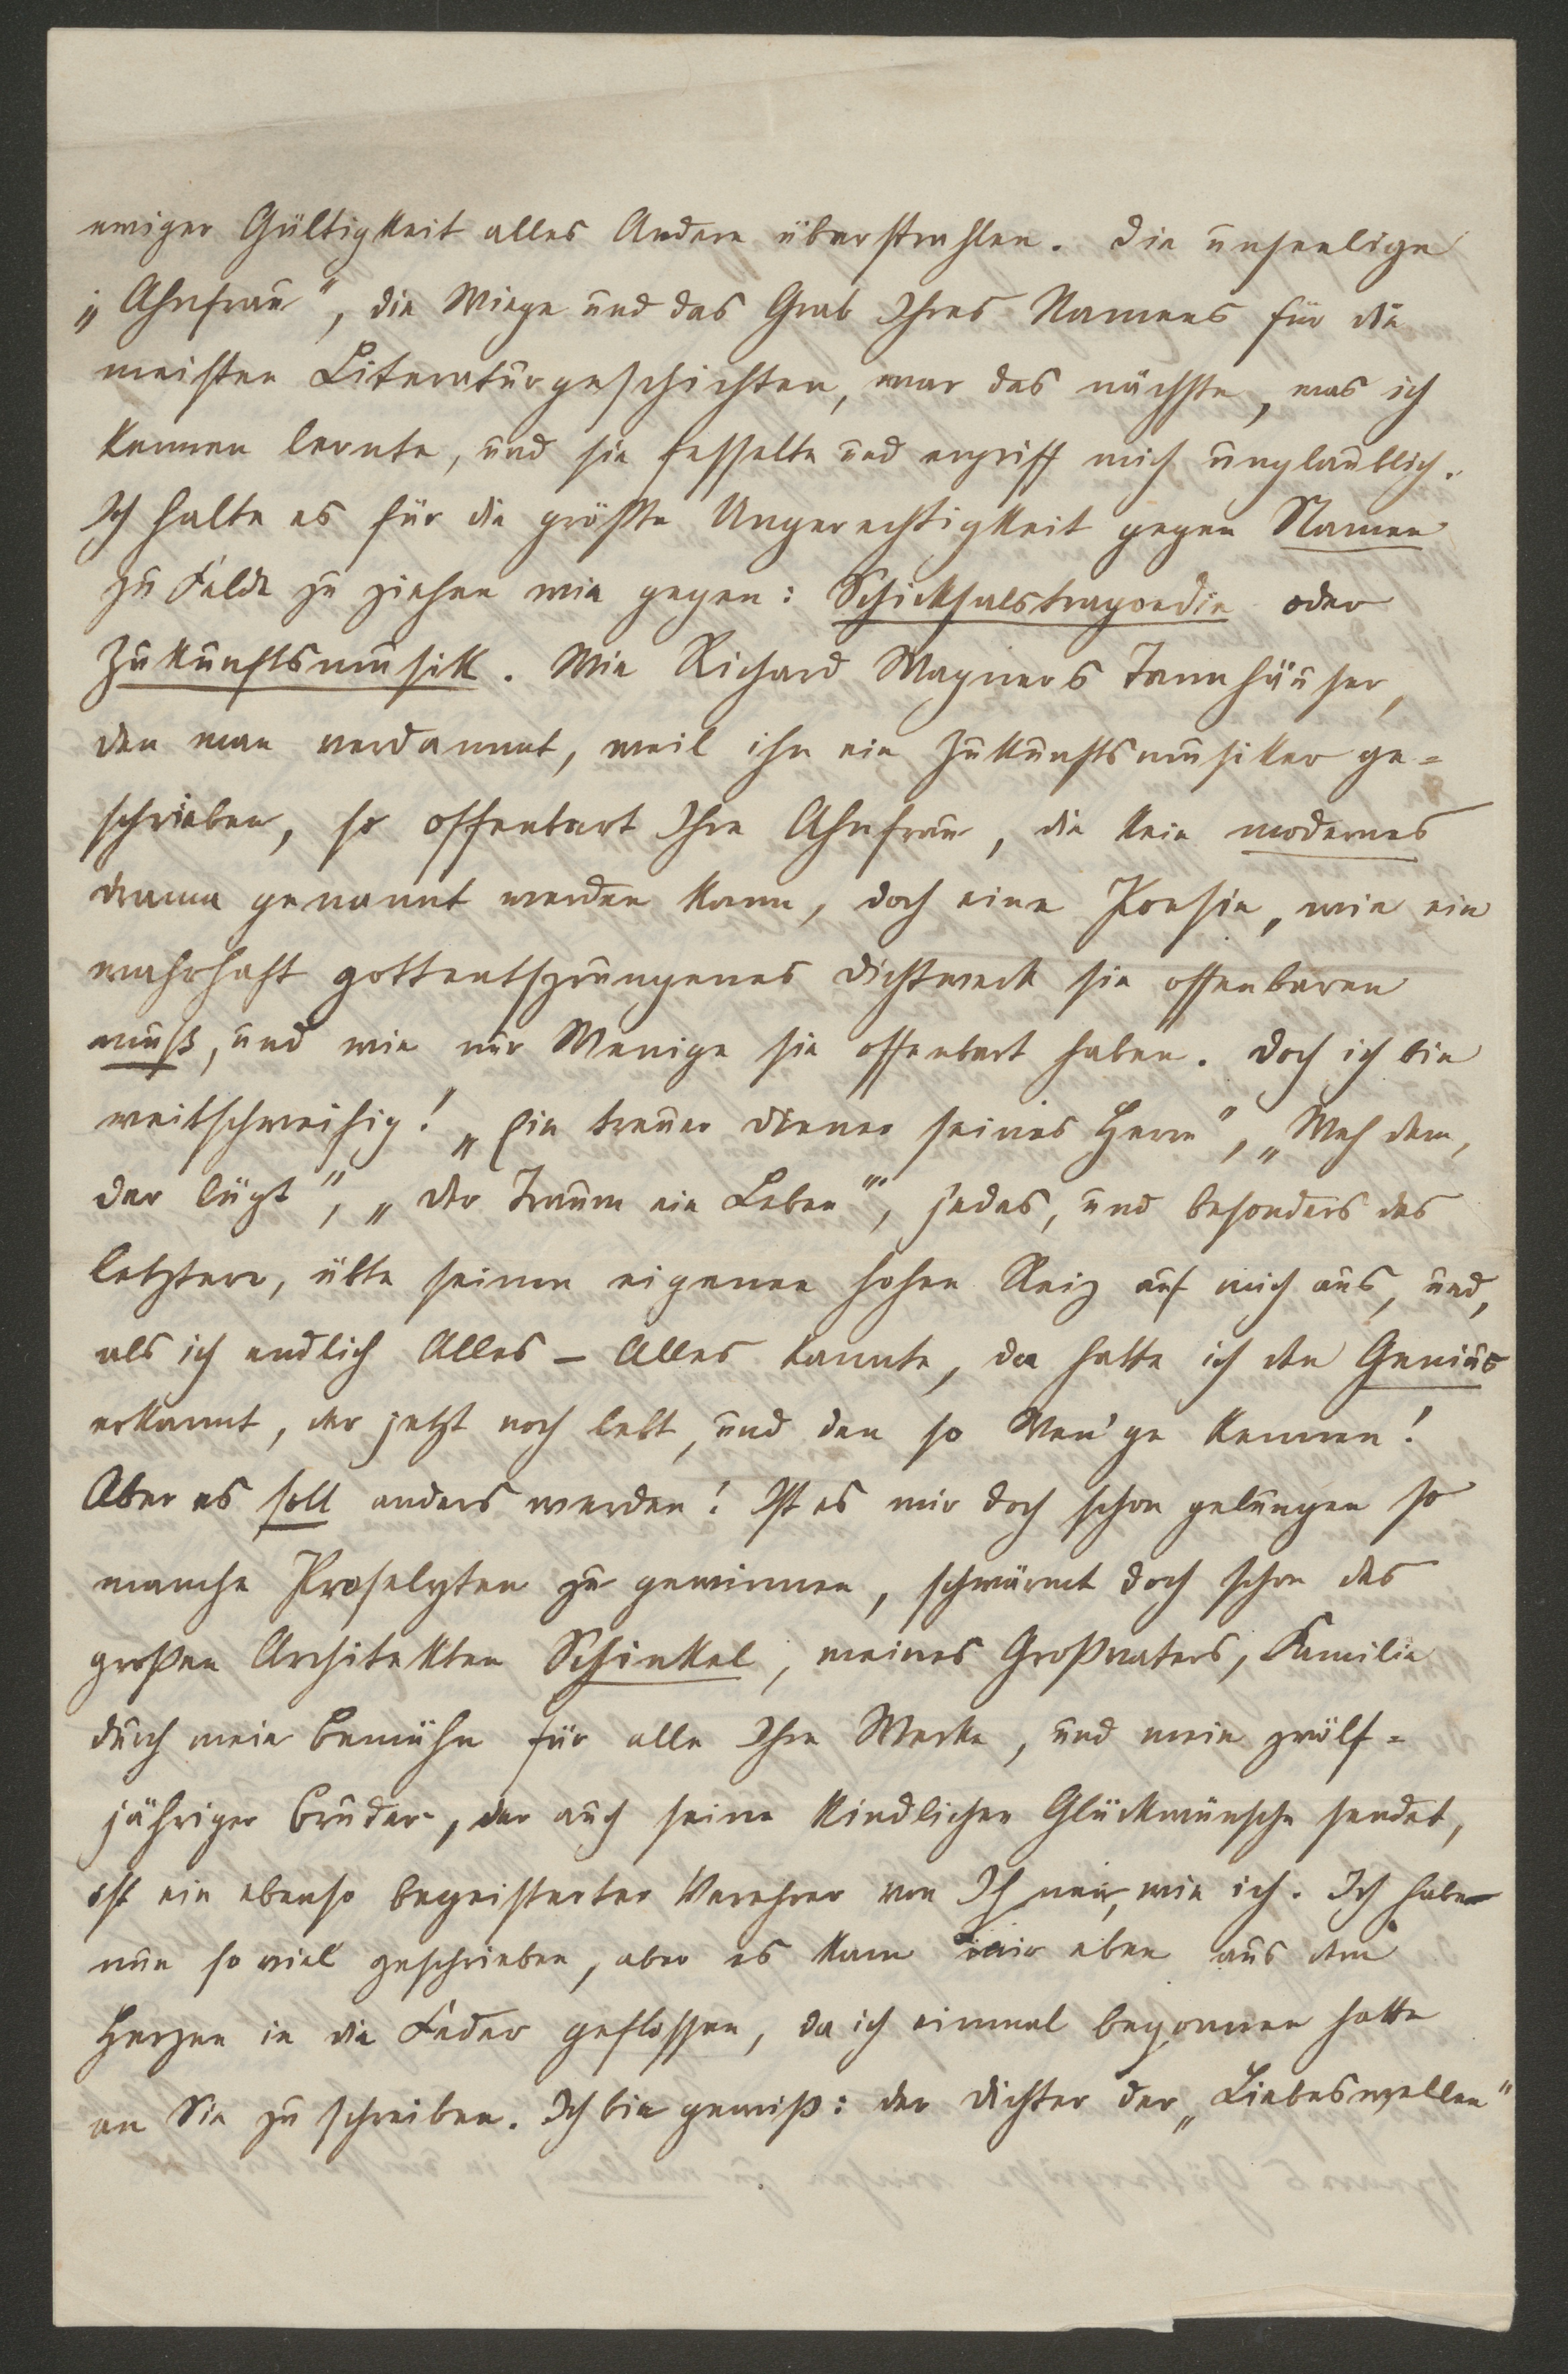 ewiger Gültigkeit alles Andere überstrahlen. Die unseelige
„Ahnfrau", die Wiege und das Grab Ihres Namens für die
meisten Literaturgeschichten, war das nächste, was ich
kennen lernte, und sie fesselte und ergriff mich unglaublich.
Ich halte es für die größte Ungerechtigkeit gegen Namen
zu Felde zu ziehen wie gegen: Schicksalstragoedie oder
Zukunftsmusik. Wie Richard Wagners Tannhäuser,
den man verdammt, weil ihn ein Zukunftsmusiker ge=
schrieben, so offenbart Ihre Ahnfrau, die kein modernes
Drama genannt werden kann, doch eine Poesie, wie ein
wahrhaft gottentsprungenes Dichtwerk sie offenbaren
muß, und wie nur Wenige sie offenbart haben. Doch ich bin
weitschweifig! „Ein treuer Diener seines Herrn", „Weh dem,
der lügt", „Der Traum ein Leben", jedes, und besonders das
letztere, übte seinen eigenen hohen Reiz auf mich aus, und,
als ich endlich Alles – Alles kannte, da hatte ich den Genius
erkannt, der jetzt noch lebt, und den so Wen'ge kennen!
Aber es soll anders werden! Ist es mir doch schon gelungen so
manche Proselyten zu gewinnen, schwärmt doch schon des
großen Architekten Schinkel, meines Großvaters, Familie
durch mein Bemühn für alle Ihre Werke, und mein zwölf=
jähriger Bruder, der auch seine kindlichen Glückwünsche sendet,
ist ein ebenso begeisterter Verehrer von Ihnen, wie ich. Ich habe
nun so viel geschrieben, aber es kam mir eben aus dem
Herzen in die Feder geflossen, da ich einmal begonnen hatte
an Sie zu schreiben. Ich bin gewiß: der Dichter der „Liebeswellen"